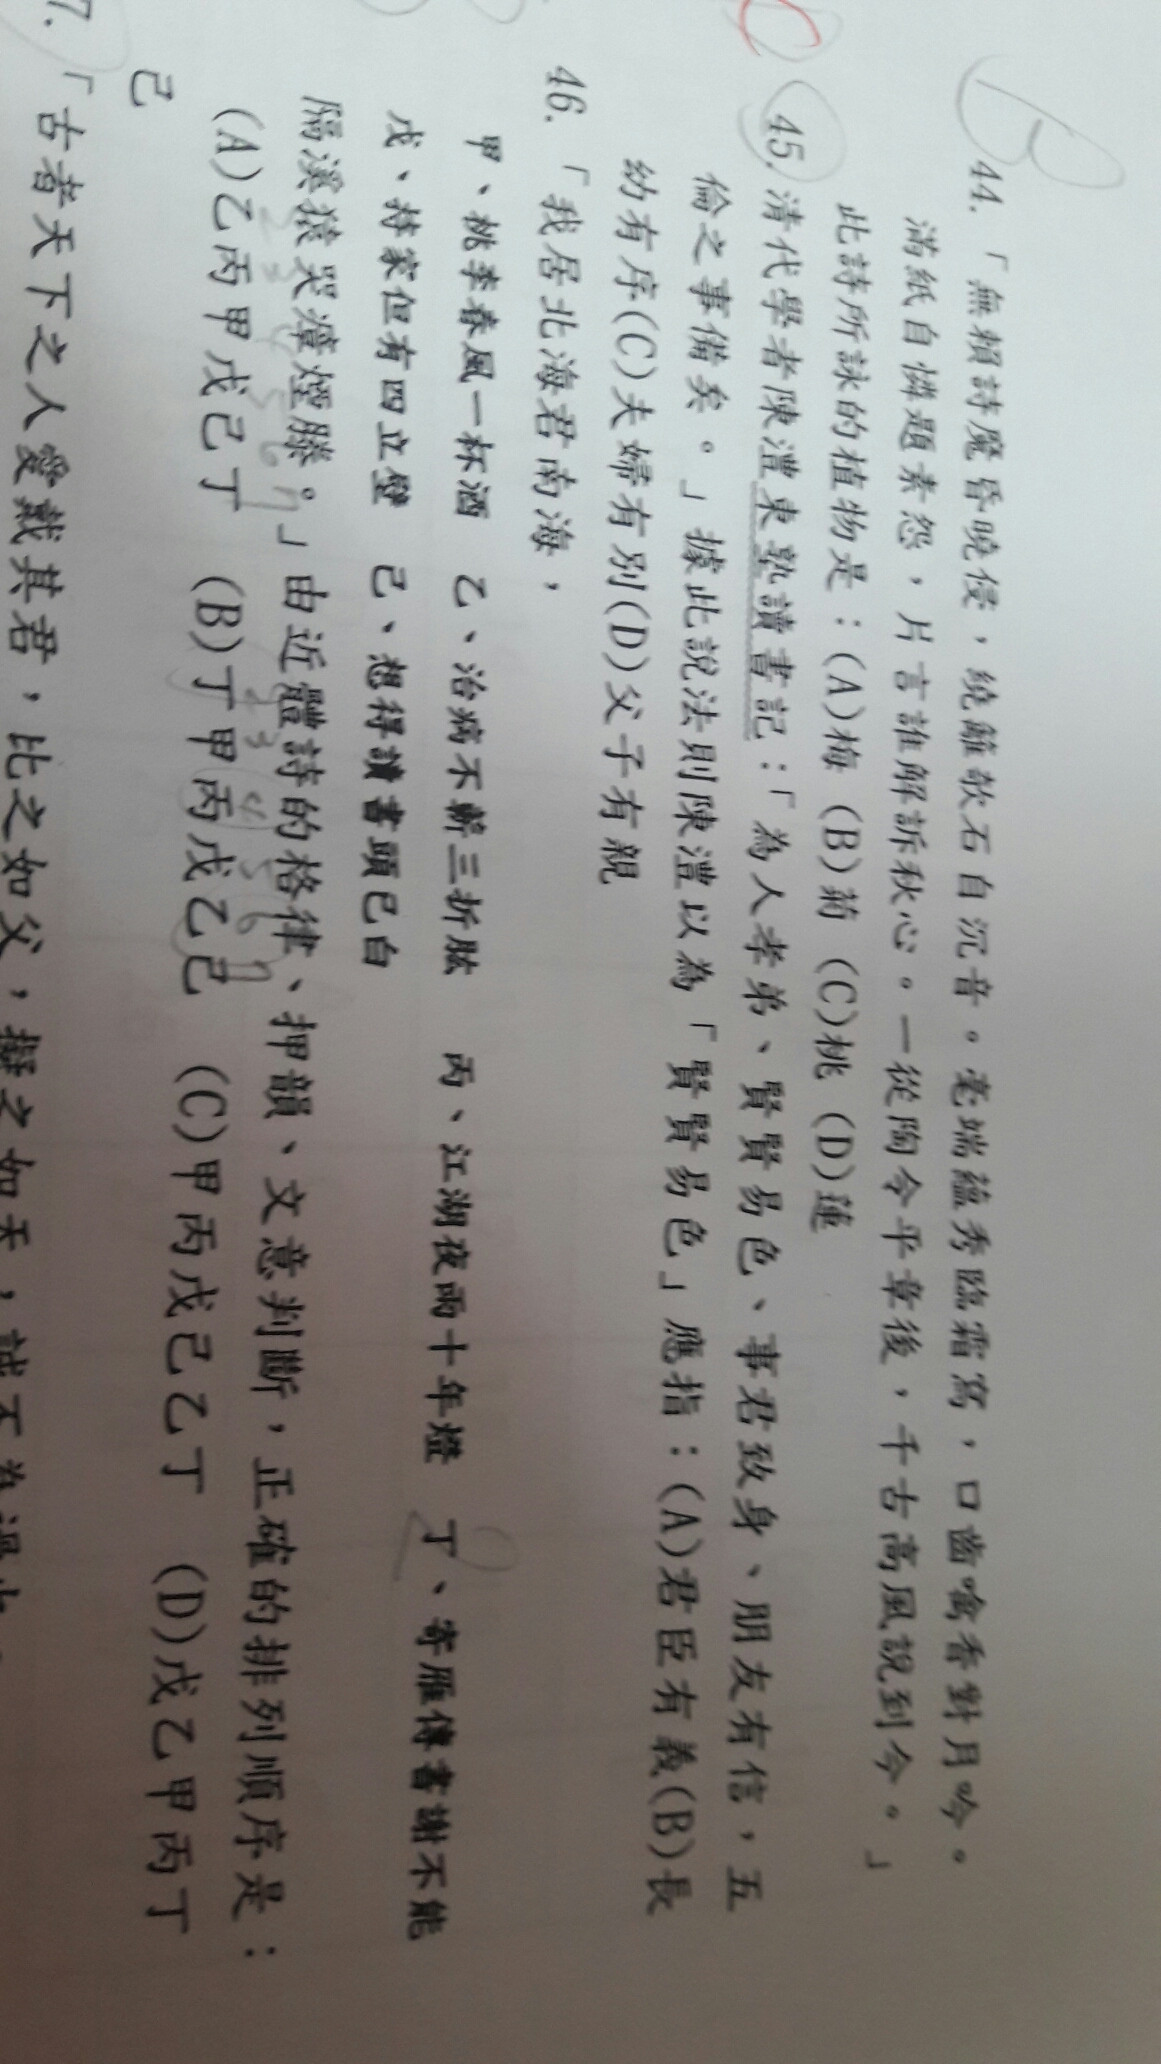 44. 「無賴詩魔昏曉侵，繞籬欹石自沉音。毫端蘊秀臨霜寫，口齒噙香對月吟。
滿紙自憐題素怨，片言誰解訴秋心。一從陶令平章後，千古高風說到今。」
此詩所詠的植物是：(A)梅 (B)菊 (C)桃 (D)蓮
45. 清代學者陳澧東塾讀書記：「為人孝弟、賢賢易色、事君致身、朋友有信，五
倫之事備矣。」據此說法則陳澧以為「賢賢易色」應指：(A)君臣有義(B)長
幼有序(C)夫婦有別(D)父子有親
46. 「我居北海君南海，
甲、桃李春風一杯酒 乙、治病不蘄三折肱 丙、江湖夜雨十年燈 丁、寄雁傳書謝不能
戊、持家但有四立壁 己、想得讀書頭已白
隔溪猿哭瘴煙滕。」由近體詩的格律、押韻、文意判斷，正確的排列順序是：
(A)乙丙甲戊己丁 (B)丁甲丙戊乙己 (C)甲丙戊己乙丁 (D)戊乙甲丙丁
己
7. 「古者天下之人愛戴其君，比之如父，擬之如天，誠不為過也。